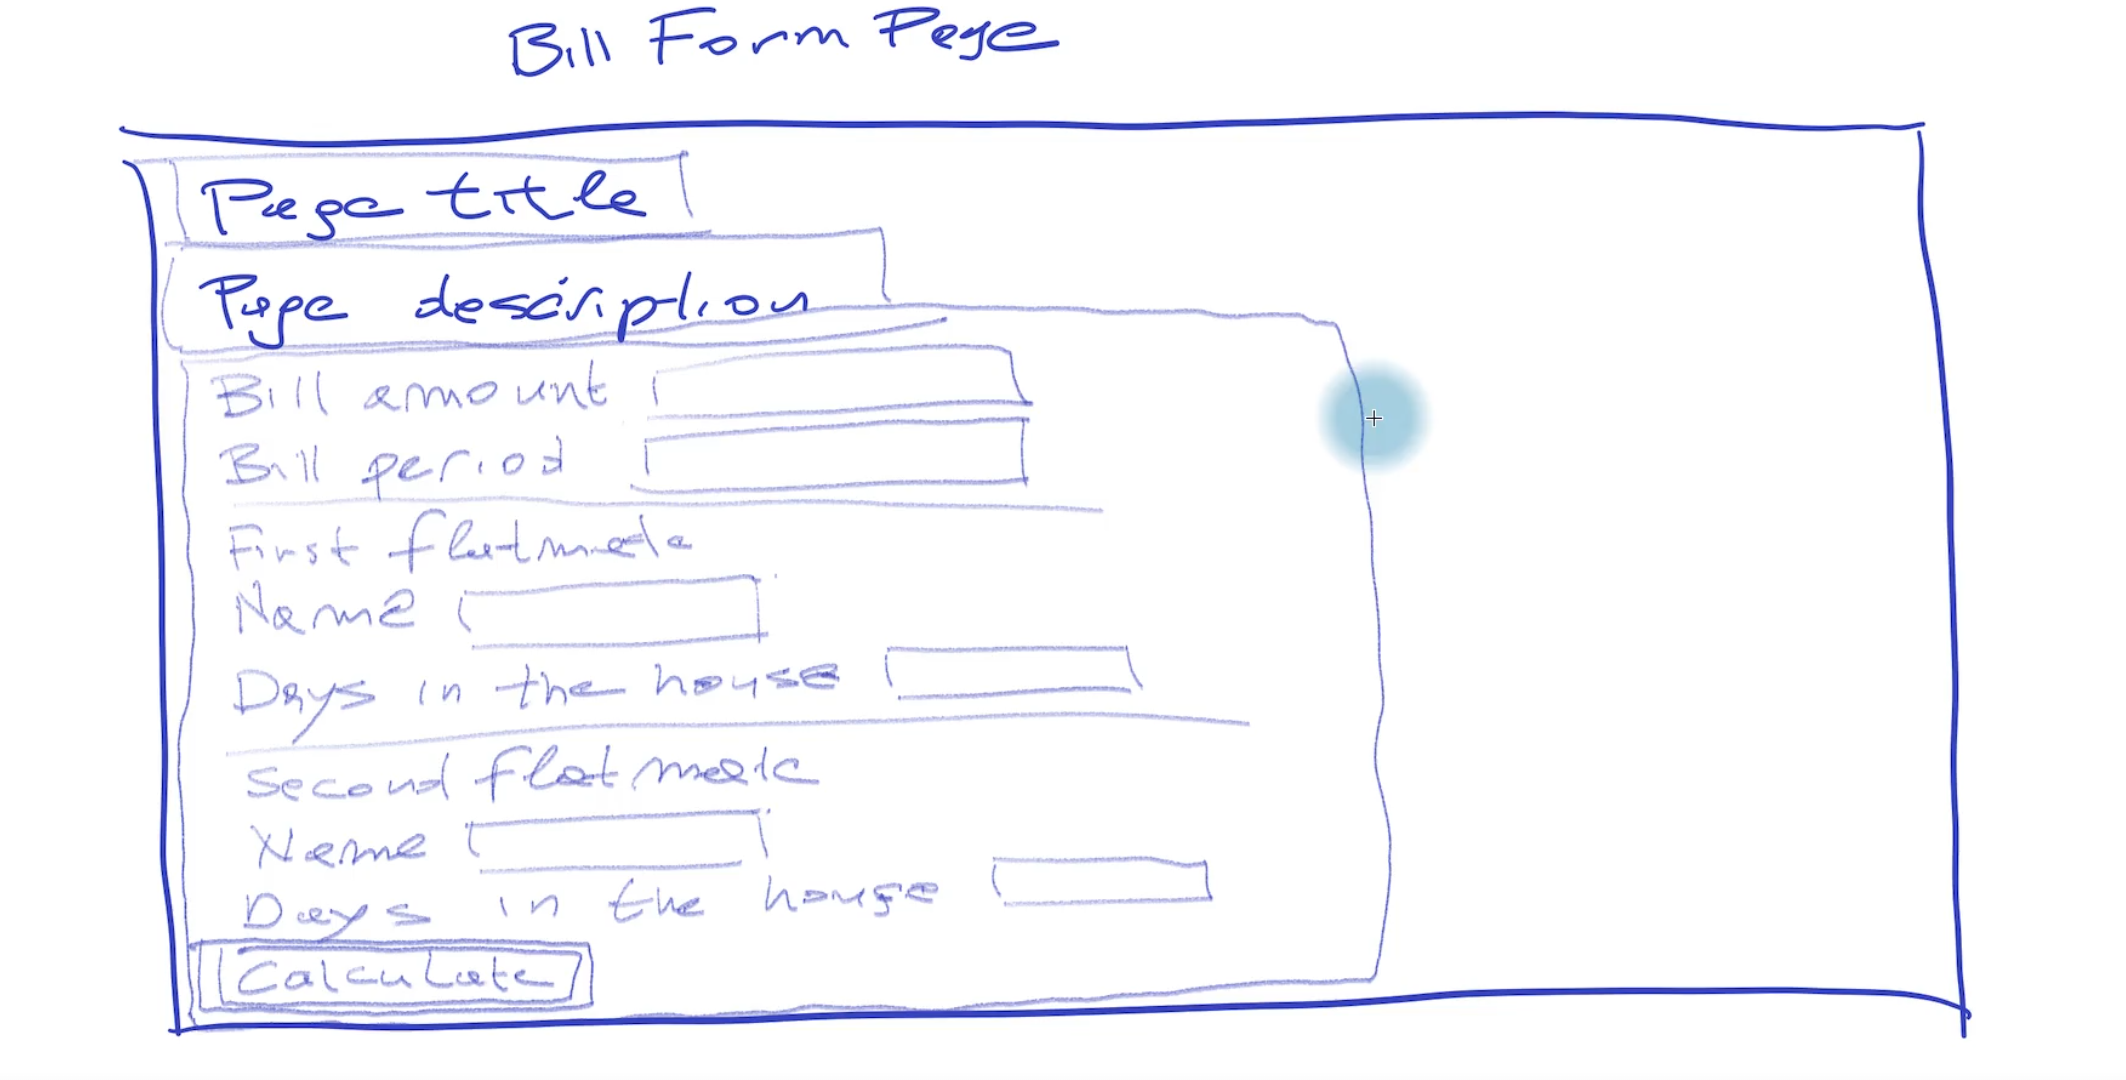 Bill Form Page
Page title
Page description
Bill amount
Bill period
First flatmate
Name
Days in the house
Second flatmate
Name
Days in the house
Calculate